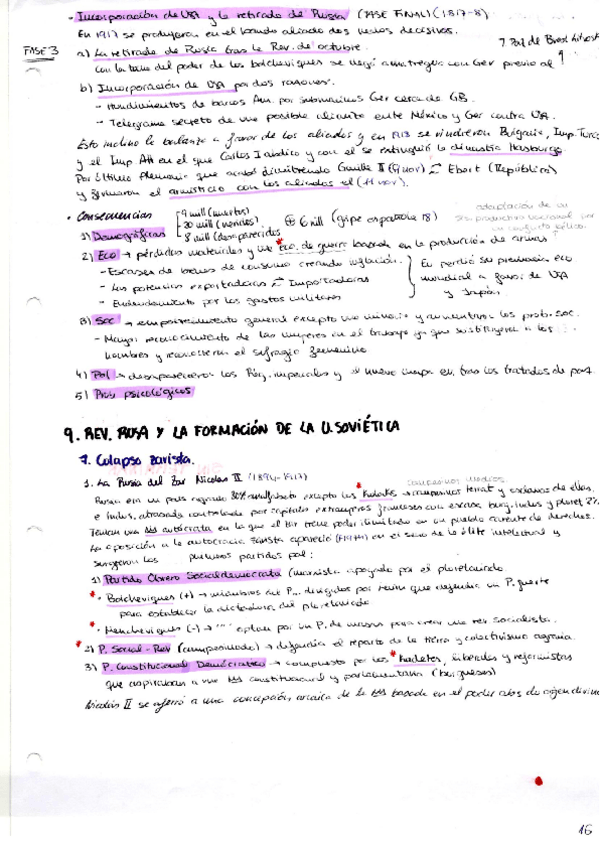 - Incorporación de USA y la retirada de Rusia (FASE FINAL) (1917-8)
FASE 3
En 1917 se produjeron en el bando aliado dos hechos decisivos.
a) La retirada de Rusia tras la Rev. de octubre.
Con la toma del poder de los bolcheviques se negó a entregua con Ger previo al
b) Incorporación de USA por dos razones.
- Hundimientos de barcos Am. por submarinos Ger cerca de GB.
- Telegrama secreto de una posible alianza entre México y Ger contra USA.
Esto inclino la balanza a favor de los aliados y en 1918 se rindieron Bulgaria, Imp. Turco
y el Imp. AH en el que Carlos I abdico y con el se extinguió la dinastía Hasburgo.
Por último Alemania que acabó dimitiendo Guille II (9 nov) Ebert (República)
y firmaron el armisticio con los aliados el (11 nov).
• Consecuencias
9 mill (muertos)
1) Demográficas 20 mill (heridos) ⊕ 6 mill (gripe española 18)
8 mill (desaparecidos
2) Eco → pérdidas materiales y una eco. de guerra basada en la producción de armas
- Escasez de bienes de consumo creando inflación.
- Las potencias exportadoras Importadoras
- Endeudamiento por los gastos militares
Eu perdió su premacía eco
mundial a favor de USA
y Japón.
3) Soc → empobrecimiento general excepto una minoría y aumentaron los prob. soc.
- Mayor reconocimiento de las mujeres en el trabajo ya que sustituyeron a los
hombres y reconocieron el sufragio femenino.
4) Pol → desaparecieron los Reg. imperiales y el nuevo mapa eu. tras los tratados de paz.
5) Prob psicológicos
9. REV. RUSA Y LA FORMACIÓN DE LA U. SOVIÉTICA
7. Colapso zarista.
1. La Rusia del Zar Nicolas II (1894-1917)
Rusia era un país agrario 80% analfabeto excepto los kulaks → campesinos terrat y esclavos de ellos,
e indus. atrasada controlada por capitales extranjeros franceses con escasa burg. indus y prolet 2%.
Tenían una autócrata en la que el zar tiene poder ilimitado en un pueblo carente de derechos.
La oposición a la autocracia zarista apareció en el seno de la élite intelectual y
surgieron los primeros partidos pol:
1) Partido Obrero Socialdemócrata (marxista apoyado por el proletariado.
• Bolcheviques (+) → miembros del P... dirigidos por Lenin que defendía un P. fuerte
para establecer la dictadura del proletariado
• Mencheviques (-) → "" optan por un P. de masas para crear una rev socialista.
2) P. Social-Rev (campesinado) → defendía el reparto de la tierra y colectivismo agrario.
3) P. Constitucional Demócrata → compuesto por los kadetes, liberales y reformistas
que aspiraban a una constitucional y parlamentaria (burgueses)
Nicolás II se aferró a una concepción arcaica de la basada en el poder abs de origen divino
16